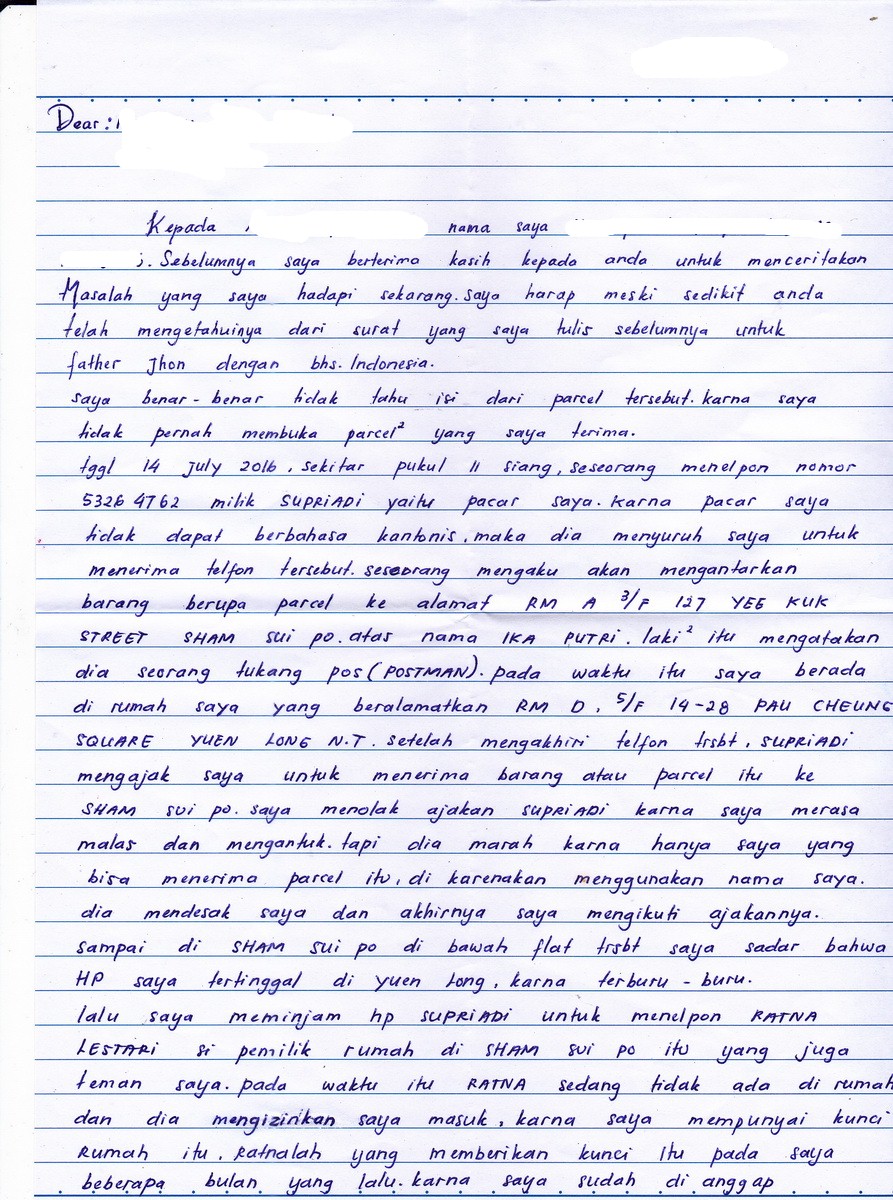 Dear :
Kepada nama saya
Sebelumnya saya berterima kasih kepada anda untuk menceritakan
Masalah yang saya hadapi sekarang. saya harap meski sedikit anda
telah mengetahuinya dari surat yang saya tulis sebelumnya untuk
father Jhon dengan bhs. Indonesia.
saya benar - benar tidak tahu isi dari parcel tersebut. karna saya
tidak pernah membuka parcel² yang saya terima.
tggl 14 July 2016, sekitar pukul 11 siang, seseorang menelpon nomor
5326 4762 milik SUPRIADI yaitu pacar saya. karna pacar saya
tidak dapat berbahasa kantonis, maka dia menyuruh saya untuk
menerima telfon tersebut. seseorang mengaku akan mengantarkan
barang berupa parcel ke alamat RM A 3/F 127 YEE KUK
STREET SHAM SUI PO. atas nama IKA PUTRI. laki² itu mengatakan
dia seorang tukang pos (POSTMAN). pada waktu itu saya berada
di rumah saya yang beralamatkan RM D, 5/F 14-28 PAU CHEUNG
SQUARE YUEN LONG N.T. setelah mengakhiri telfon trsbt, SUPRIADI
mengajak saya untuk menerima barang atau parcel itu ke
SHAM SUI PO. saya menolak ajakan SUPRIADI karna saya merasa
malas dan mengantuk. tapi dia marah karna hanya saya yang
bisa menerima parcel itu, di karenakan menggunakan nama saya.
dia mendesak saya dan akhirnya saya mengikuti ajakannya.
sampai di SHAM SUI PO di bawah flat trsbt saya sadar bahwa
HP saya tertinggal di Yuen Long, karna terburu - buru.
lalu saya meminjam hp SUPRIADI untuk menelpon RATNA
LESTARI si pemilik rumah di SHAM SUI PO itu yang juga
teman saya. pada waktu itu RATNA sedang tidak ada di rumah
dan dia mengizinkan saya masuk, karna saya mempunyai kunci
rumah itu. Ratnalah yang memberikan kunci itu pada saya
beberapa bulan yang lalu. karna saya sudah di anggap